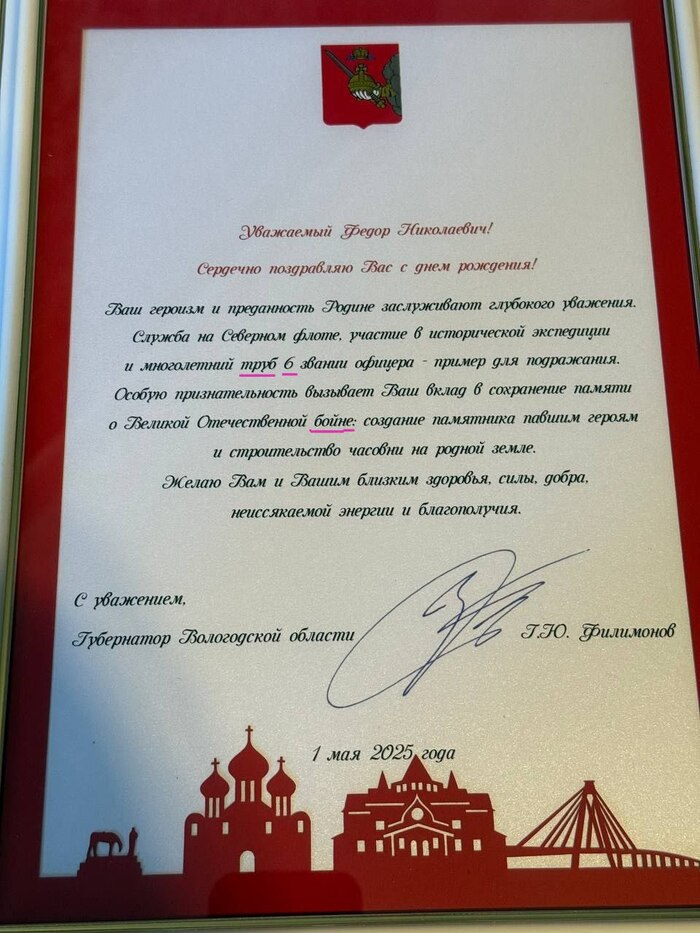 Уважаемый Федор Николаевич!
Сердечно поздравляю Вас с днем рождения!
Ваш героизм и преданность Родине заслуживают глубокого уважения.
Служба на Северном флоте, участие в исторической экспедиции
и многолетний труб 6 звании офицера - пример для подражания.
Особую признательность вызывает Ваш вклад в сохранение памяти
о Великой Отечественной бойне: создание памятника павшим героям
и строительство часовни на родной земле.
Желаю Вам и Вашим близким здоровья, силы, добра,
неиссякаемой энергии и благополучия.
С уважением,
Губернатор Вологодской области
Г.Ю. Филимонов
1 мая 2025 года